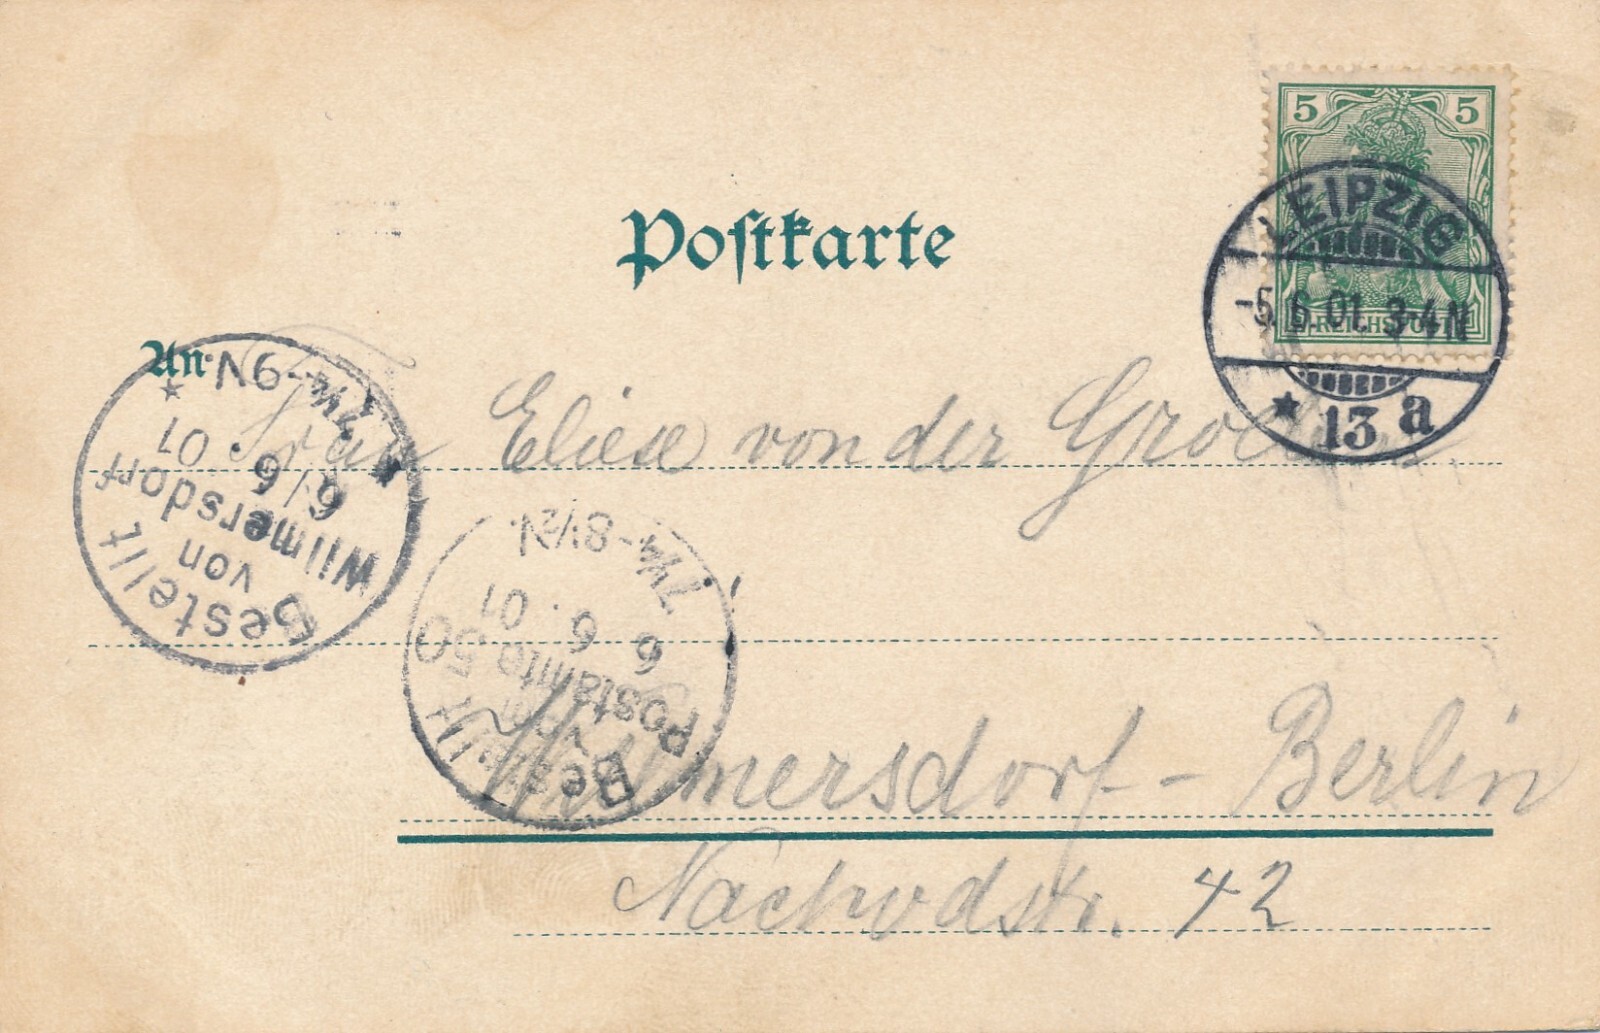 5 5
REICHSPOST
LEIPZIG
-5.6.01. 3-4N
* 13 a
Postkarte
An
Frau Eliese von der Groeben
Wilmersdorf - Berlin
Nachodstr. 42
Bestellt
von
Wilmersdorf
6/6 01
7¼-9N.
*
Bestellt
vom
Postamte 50
6 6. 01
7¼-8½V.